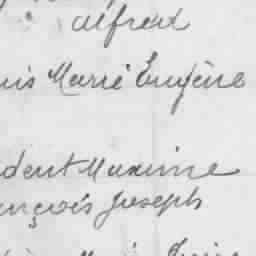 alfred
uis Marie Eugène
dent Maxime
ançois Joseph